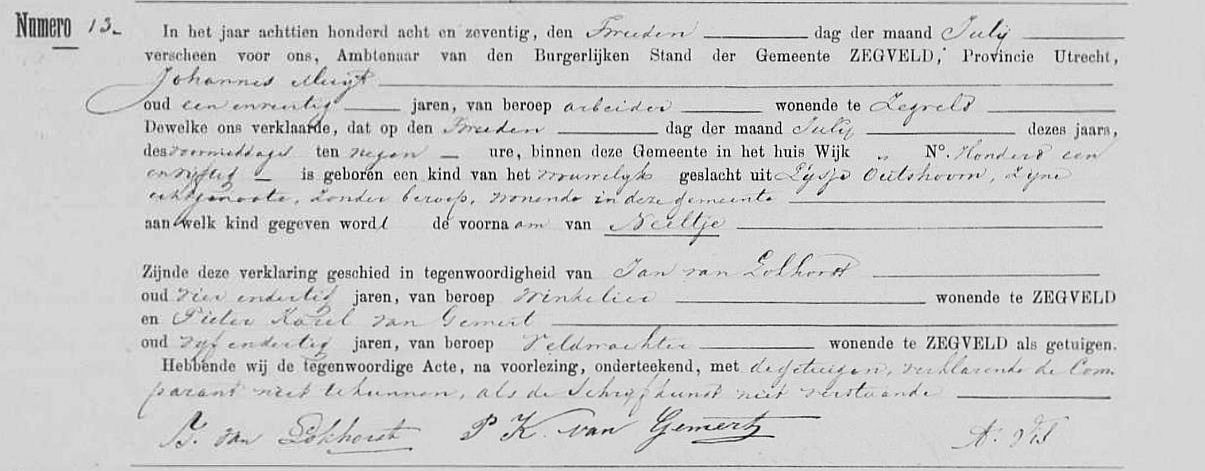 Numero 13.
In het jaar achttien honderd acht en zeventig, den Tweeden dag der maand July
verscheen voor ons, Ambtenaar van den Burgerlijken Stand der Gemeente ZEGVELD, Provincie Utrecht,
Johannes
oud een en veertig jaren, van beroep arbeider wonende te Zegveld
Dewelke ons verklaarde, dat op den Tweeden dag der maand July dezes jaars,
des voormiddags ten negen ure, binnen deze Gemeente in het huis Wijk „ No. Honderd een
en vijftig is geboren een kind van het vrouwelijk geslacht uit Lijsje Outshoorn, zijne
echtgenoote, zonder beroep, wonende in deze gemeente
aan welk kind gegeven wordt de voornaam van Neeltje
Zijnde deze verklaring geschied in tegenwoordigheid van Jan van Lokhorst
oud vier en dertig jaren, van beroep Winkelier wonende te ZEGVELD
en Pieter Karel van Gemert
oud vijf en dertig jaren, van beroep Veldwachter wonende te ZEGVELD als getuigen.
Hebbende wij de tegenwoordige Acte, na voorlezing, onderteekend, met de getuigen, verklarende de Com
parant niet te kunnen, als de Schrijfkunst niet verstaande
J. van Lokhorst P K. van Gemert A. Vis